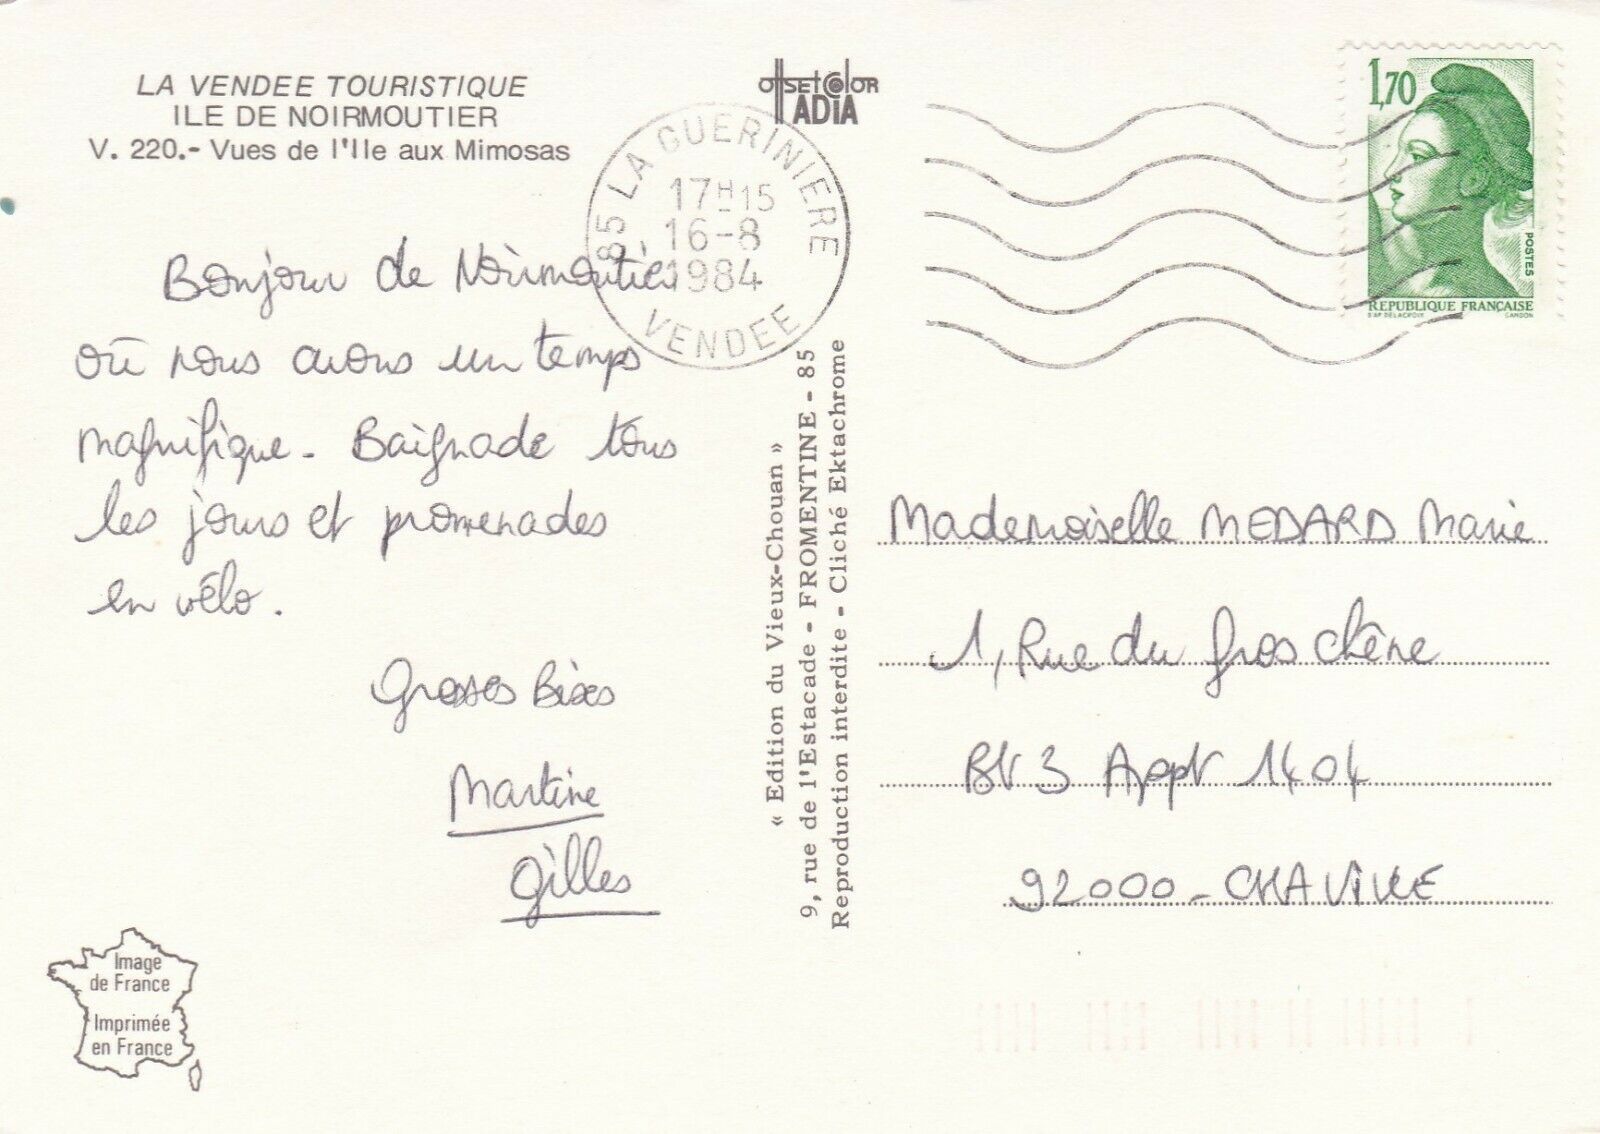 LA VENDEE TOURISTIQUE
ILE DE NOIRMOUTIER
V. 220.- Vues de l'Ile aux Mimosas
Bonjour de Noirmoutier
où nous avons un temps
magnifique. Baignade tous
les jours et promenades
en vélo.
Grosses Bises
Martine
Gilles
Image
de France
Imprimée
en France
OffsetColor
ADIA
85 LA GUERINIERE
17H15
16-8
1984
VENDEE
« Edition du Vieux-Chouan »
9, rue de l'Estacade - FROMENTINE - 85
Reproduction interdite - Cliché Ektachrome
1,70
POSTES
REPUBLIQUE FRANÇAISE
D'AP DELACROIX GANDON
Mademoiselle MEDARD Marie
1, Rue du gros chêne
Bt 3 Appt 1404
92000 - CHAVILLE